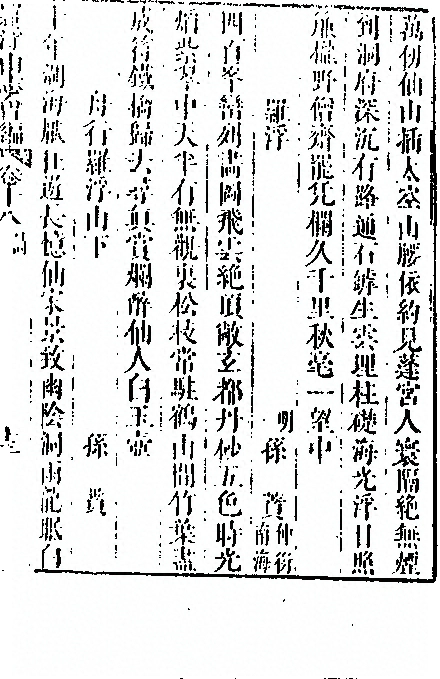 萬仞仙山插太空山腰依約見蓬宮人寰隔絕無煙
到洞府深沉有路通石罅生雲埋柱礎海光浮日照
簾櫳野僧齋罷凭欄久千里秋毫一望中
羅浮　明孫蕡仲衍南海
四百峯巒列畫圖飛雲絕頂敞玄都丹砂五色時光
焰紫翠中天半有無觀裏松枝常駐鶴山間竹葉盡
成符鐵橋歸去尋真賞爛醉仙人白玉壺
舟行羅浮山下　孫蕡
十年湖海風任遊長憶仙家景致幽陰洞雨龍眠白
羅浮山志會編卷十八